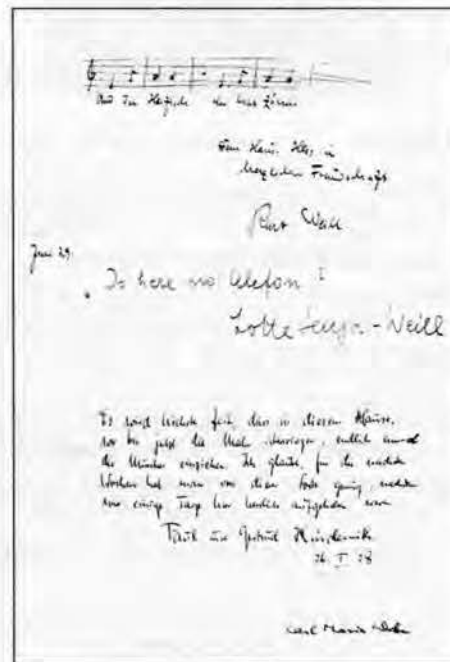 Und der Haifisch der hat Zähne
dem Haus Hess in
herzlicher Freundschaft
Kurt Weill
Juni 29.
Is here no telefon!
Lotte Lenja-Weill
Es wird höchste Zeit, dass in diesem Hause,
wo bis jetzt die Maler überwiegen, endlich einmal
die Musiker einziehen. Ich glaube, für die nächsten
Wochen hat man von dieser Sorte genug, nachdem
wir einige Tage hier herrlich aufgehoben waren
Paul und Gertrud Hindemith
28
Carl Maria Weber